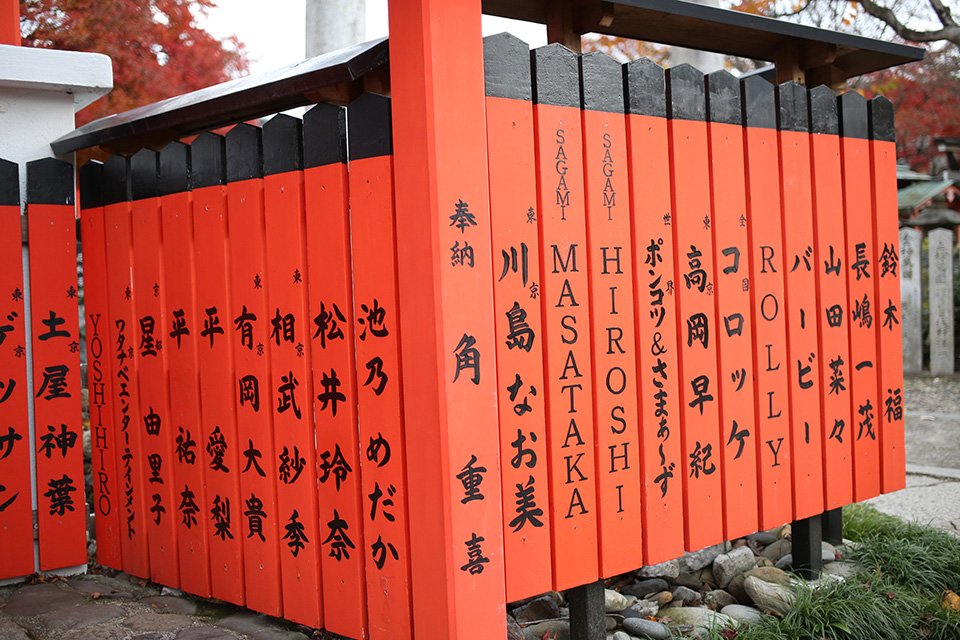 鈴木 福
長嶋一茂
山田菜々
バービー
ROLLY
全国 コロッケ
東京 高岡早紀
世界 ポンコツ&さまぁ〜ず
SAGAMI HIROSHI
SAGAMI MASATAKA
東京 川島なお美
奉納 角 重喜
池乃めだか
松井玲奈
東京 相武紗季
東京 有岡大貴
平 愛梨
平 祐奈
京都 星 由里子
東京 ワタナベエンターテインメント
YOSHIHIRO
東京 土屋神葉